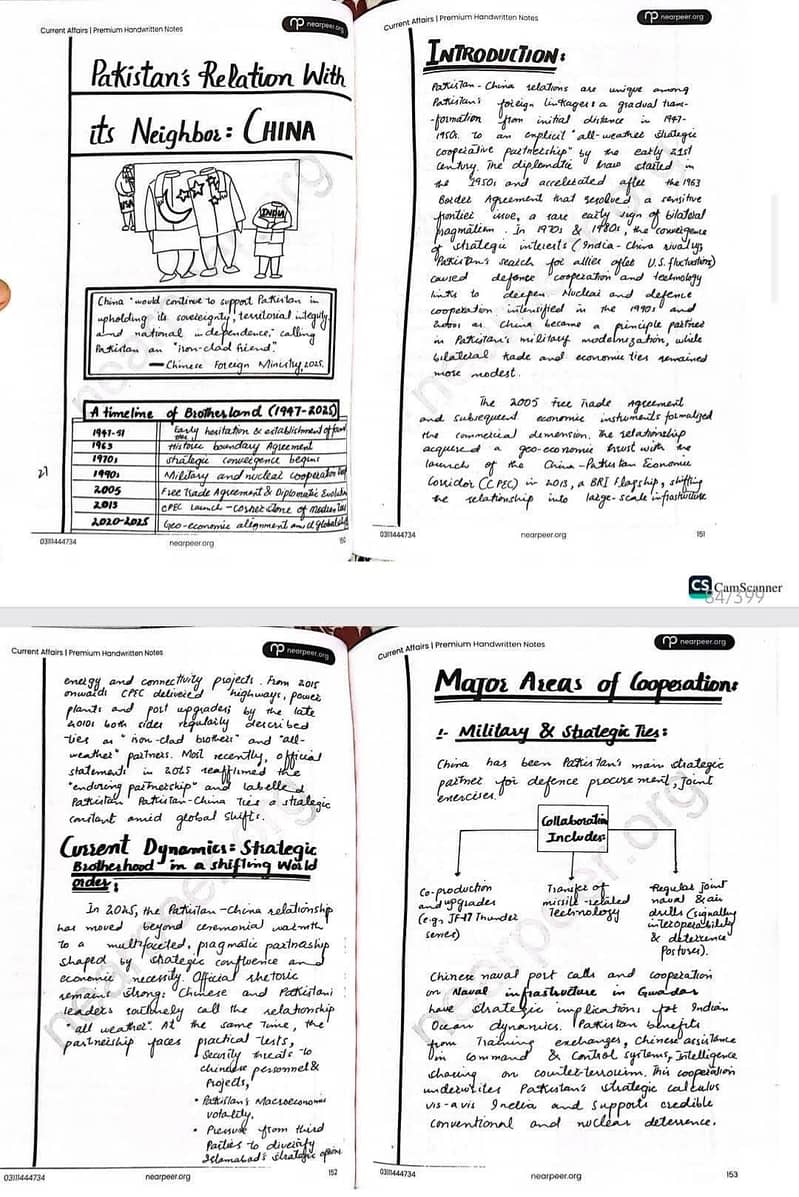 Current Affairs | Premium Handwritten Notes
nearpeer.org
Pakistan's Relation With
its Neighbor: CHINA
USA
INDIA
China "would continue to support Pakistan in
upholding its sovereignty, territorial integrity,
and national independence," calling
Pakistan an "iron-clad friend."
— Chinese Foreign Ministry, 2025.
A timeline of Brotherland (1947-2025)
1947-51 Early hesitation & establishment of
1963 Historic boundary Agreement
1970s Strategic convergence begins
1990s Military and nuclear cooperation
2005 Free Trade Agreement & Diplomatic
2013 CPEC Launch - Corner stone of Modern
2020-2025 Geo-economic alignment and
27
03111444734
nearpeer.org
Current Affairs | Premium Handwritten Notes
nearpeer.org
INTRODUCTION:
Pakistan-China relations are unique among
Pakistan's foreign linkages: a gradual trans-
-formation from initial distance in 1947-
1950s to an explicit "all-weather strategic
cooperative partnership" by the early 21st
century. The diplomatic started in
the 1950s and accelerated after the 1963
Border Agreement that resolved a sensitive
frontier issue, a rare early sign of bilateral
pragmatism. In 1970s & 1980s, the convergence
of strategic interests (India-China rivalry,
Pakistan's search for allies after U.S. fluctuations)
caused defence cooperation and technology
links to deepen. Nuclear and defence
cooperation intensified in the 1990s and
2000s as China became a principle partner
in Pakistan's military modernization, while
bilateral trade and economic ties remained
more modest.
The 2005 Free Trade Agreement
and subsequent economic instruments formalized
the commercial dimension. The relationship
acquired a geo-economic thrust with the
launch of the China-Pakistan Economic
Corridor (CPEC) in 2013, a BRI Flagship, shifting
the relationship into large-scale infrastructure
03111444734
nearpeer.org
151
CS CamScanner
84/399
Current Affairs | Premium Handwritten Notes
nearpeer.org
energy and connectivity projects. From 2015
onwards CPEC delivered highways, power
plants and port upgrades; by the late
2010s both sides regularly described
ties as "iron-clad brothers" and "all-
weather" partners. Most recently, official
statements in 2025 reaffirmed the
"enduring partnership" and labelled
Pakistan Pakistan-China Ties a strategic
constant amid global shifts.
Current Dynamics: Strategic
Brotherhood in a shifting World
order:
In 2025, the Pakistan-China relationship
has moved beyond ceremonial warmth
to a multifaceted, pragmatic partnership
shaped by strategic confluence and
economic necessity. Official rhetoric
remains strong: Chinese and Pakistani
leaders routinely call the relationship
"all weather". At the same time, the
partnership faces practical tests,
Security threats to
chinese personnel &
Projects,
• Pakistan's Macroeconomic
votality,
• Pressure from third
Parties to diversify
Islamabad's strategic options
03111444734
nearpeer.org
152
Current Affairs | Premium Handwritten Notes
nearpeer.org
Major Areas of Cooperation:
1- Military & Strategic Ties:
China has been Pakistan's main strategic
partner for defence procurement, joint
exercises.
Collaboration
Includes:
Co-production
and upgrades
(e.g. JF-17 Thunder
series)
Transfer of
missile-related
Technology
Regular joint
naval & air
drills (signalling
interoperability
& deterrence
postures).
Chinese naval port calls and cooperation
on Naval infrastructure in Gwadar
have strategic implications for Indian
Ocean dynamics. Pakistan benefits
from Training exchanges, Chinese assistance
in command & control systems, Intelligence
sharing on counter-terrorism. This cooperation
underwrites Pakistan's strategic calculus
vis-a-vis India and supports credible
conventional and nuclear deterrence.
03111444734
nearpeer.org
153